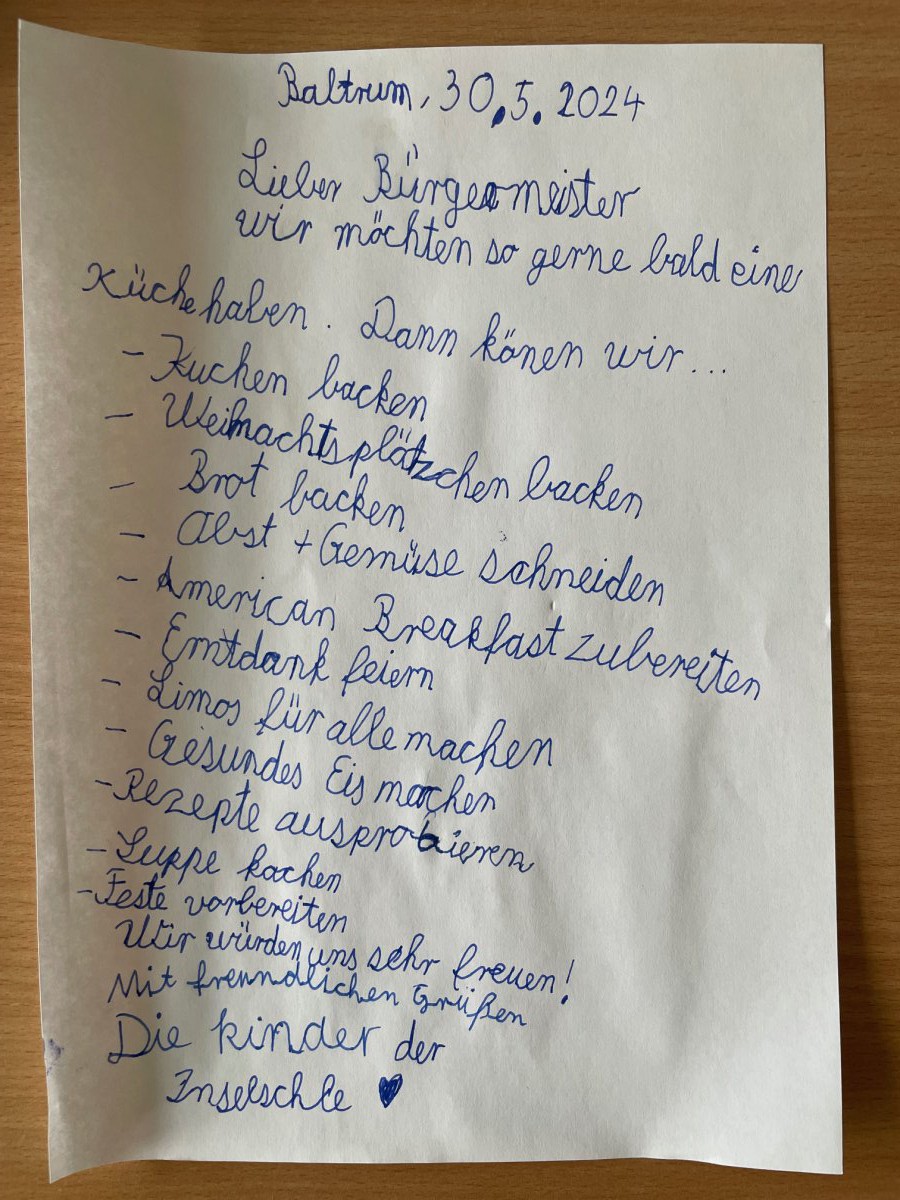 Baltrum, 30.5.2024
Lieber Bürgermeister
wir möchten so gerne bald eine
Küche haben. Dann könen wir...
- Kuchen backen
- Weihnachtsplätzchen backen
- Brot backen
- Obst + Gemüse schneiden
- American Breakfast zubereiten
- Erntdank feiern
- Limos für alle machen
- Gesundes Eis machen
- Rezepte ausprobieren
- Suppe kochen
- Feste vorbereiten
Wir würden uns sehr freuen!
Mit freundlichen Grüßen
Die kinder der
Inselschle ♥